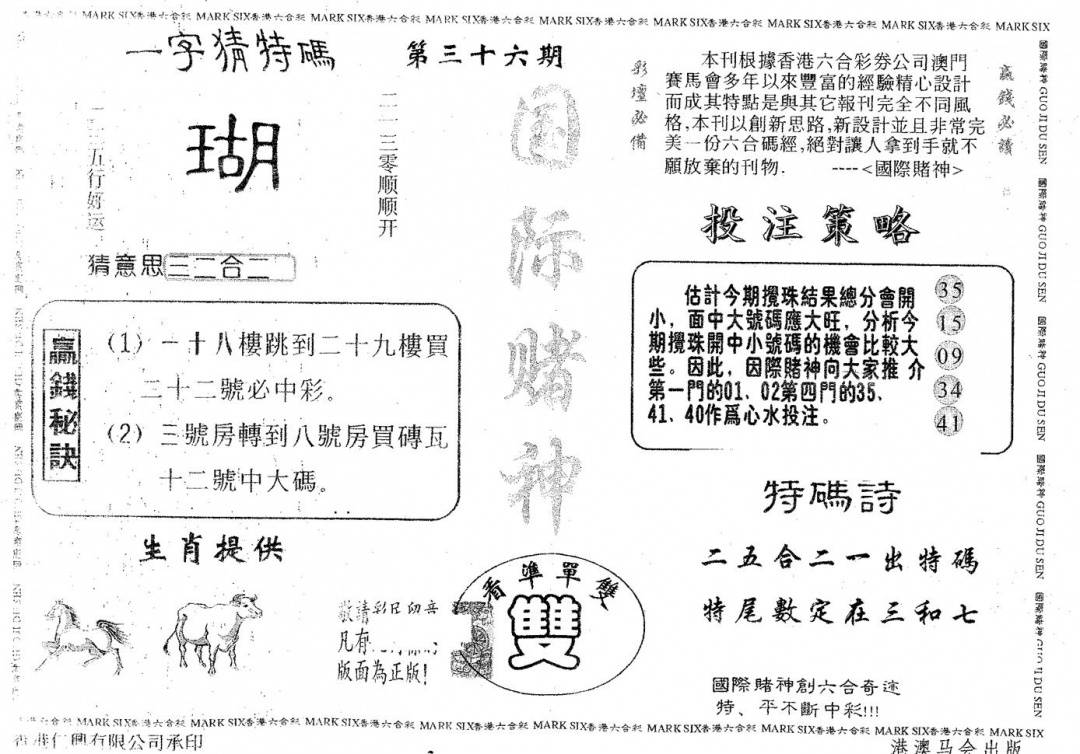 MARK SIX香港六合彩 MARK SIX香港六合彩 MARK SIX香港六合彩 MARK SIX香港六合彩 MARK SIX香港六合彩 MARK SIX香港六合彩 MARK SIX香港六合彩 MARK SIX香港六合彩 MARK SIX
一字猜特碼
第三十六期
瑚
五行好运
二一三零顺顺开
猜意思三二合二
国际赌神
彩壇必備
本刊根據香港六合彩券公司澳門
賽馬會多年以來豐富的經驗精心設計
而成其特點是與其它報刊完全不同風
格,本刊以創新思路,新設計並且非常完
美一份六合碼經,絕對讓人拿到手就不
願放棄的刊物. ----<國際賭神>
贏錢必讀
投注策略
估計今期攪珠結果總分會開
小，面中大號碼應大旺，分析今
期攪珠開中小號碼的機會比較大
些。因此，因際賭神向大家推 介
第一門的01、02第四門的35、
41、40作爲心水投注。
35
15
09
34
41
贏錢秘訣
(1) 一十八樓跳到二十九樓買
二十二號必中彩。
(2) 三號房轉到八號房買磚瓦
十二號中大碼。
生肖提供
敬請彩民留意
凡有
版面為正版!
看準單雙
雙
特碼詩
二五合二一出特碼
特尾數定在三和七
國際賭神創六合奇迹
特、平不斷中彩!!!
國際賭神 GUO JI DU SEN 國際賭神 GUO JI DU SEN 國際賭神 GUO JI DU SEN 國際賭神 GUO JI DU SEN 國際賭神 GUO JI DU SEN
MARK SIX香港六合彩 MARK SIX香港六合彩 MARK SIX香港六合彩 MARK SIX香港六合彩 MARK SIX香港六合彩 MARK SIX香港六合彩 MARK SIX香港六合彩 MARK SIX香港六合彩 MARK SIX
有限公司承印
港澳马会出版